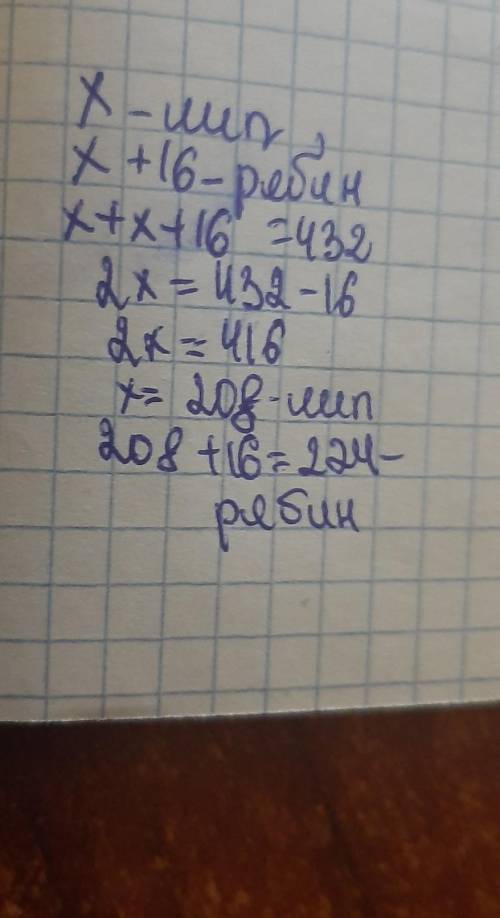 х - лип
х + 16 - рябин
х + х + 16 = 432
2х = 432 - 16
2х = 416
х = 208 - лип
208 + 16 = 224 -
рябин